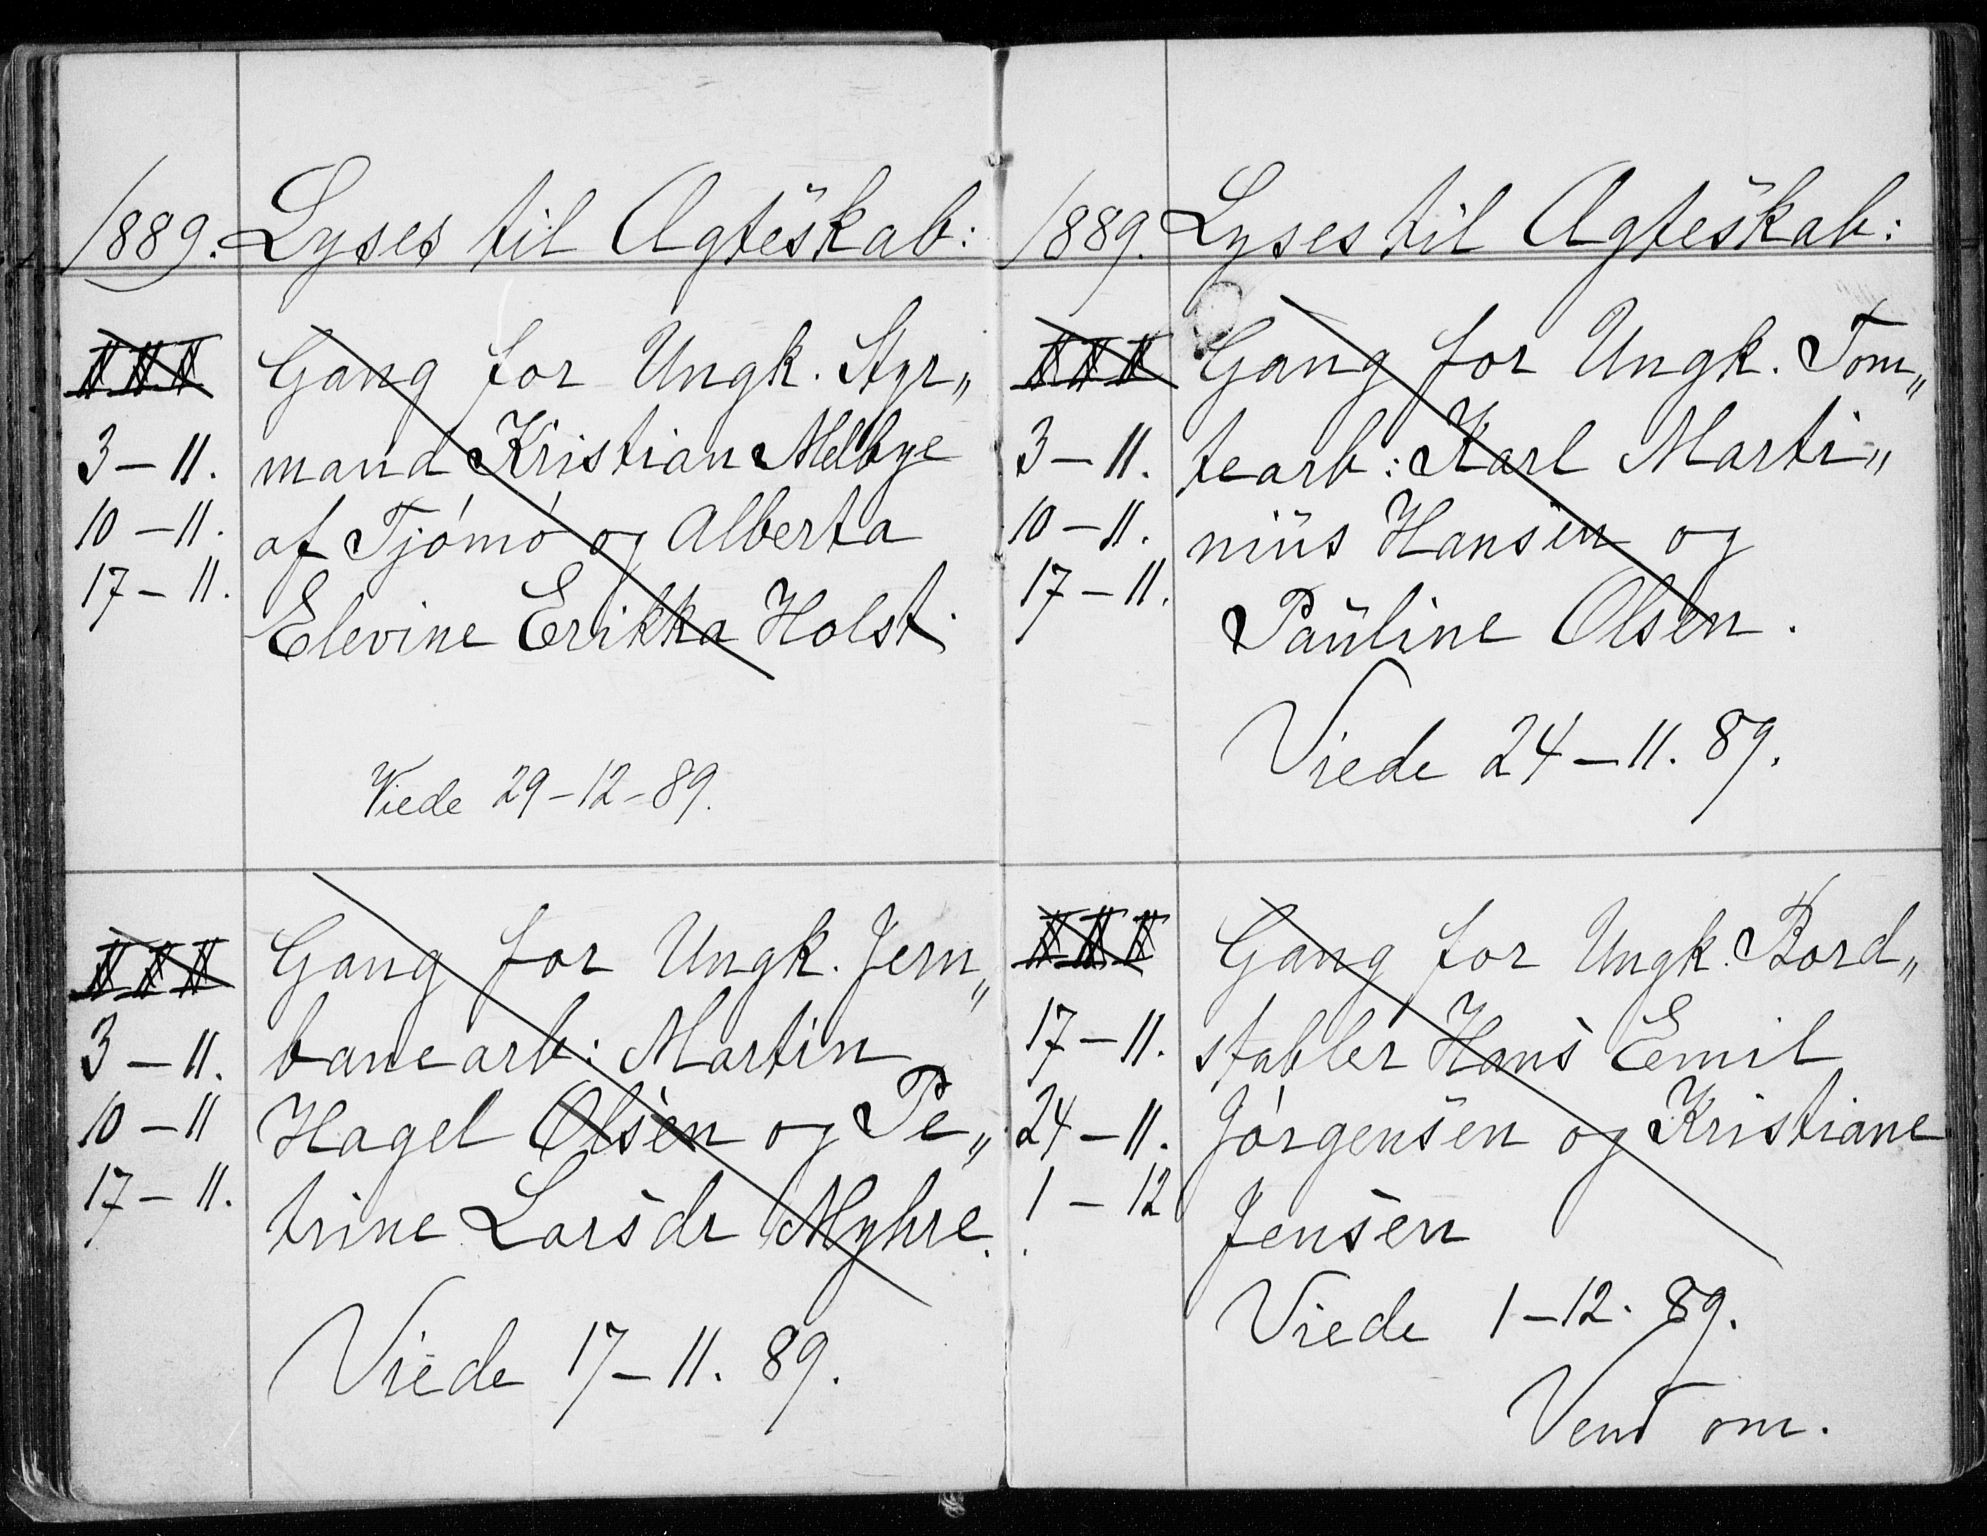 1889. Lyses til Agteskab:
I I I Gang for Ungk. Styr„
3 – 11. mand Kristian Melbye
10 – 11. af Tjómó og Alberta
17 – 11. Elevine Erikka Holst.
Viede 29 – 12 – 89.
I I I Gang for Ungk. Jern„
3 – 11. banearb: Martin
10 – 11 Hagel Olsen og Pe„
17 – 11. trine Larsdr Myhre.
Viede 17 – 11. 89.
1889. Lyses til Agteskab:
I I I Gang for Ungk. Tom„
3 – 11. tearb: Karl Marti„
10 – 11. nius Hansen og
17 – 11. Pauline Olsen.
Viede 24 – 11. 89.
I I I Gang for Ungk. Bord„
17 – 11. stabler Hans Emil
24 – 11. Jórgensen og Kristiane
1 – 12 Jensen
Viede 1 – 12. 89.
Vend om.